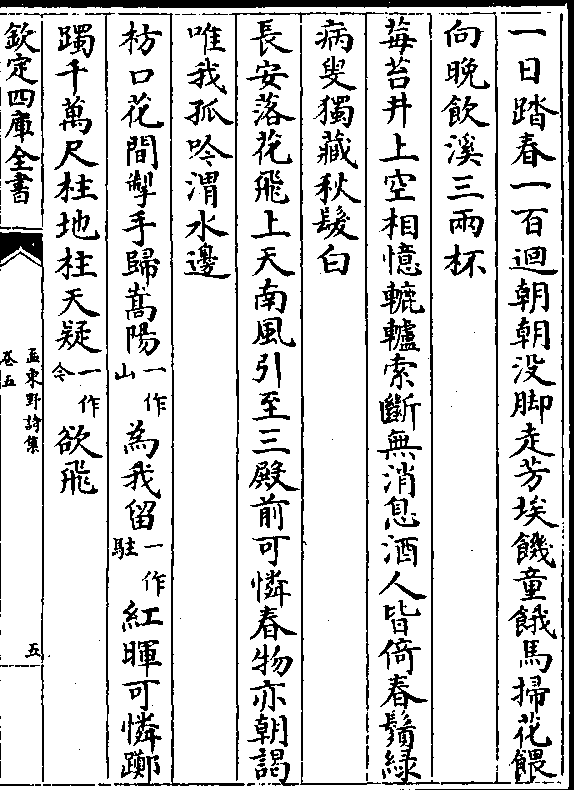 一日踏春一百迴朝朝没脚走芳埃饑童餓馬掃花餵
向晚飲溪三兩杯
莓苔井上空相憶轆轤索斷無消息酒人皆倚春鬍緑
病叟獨藏秋髮白
長安落花飛上天南風引至三殿前可憐春物亦朝謁
唯我孤吟渭水邊
枋口花間掣手歸嵩陽一作山為我留一作駐紅暉可憐躑
躅千萬尺柱地柱天疑一作令欲飛
欽定四庫全書
孟東野詩集
卷五
五